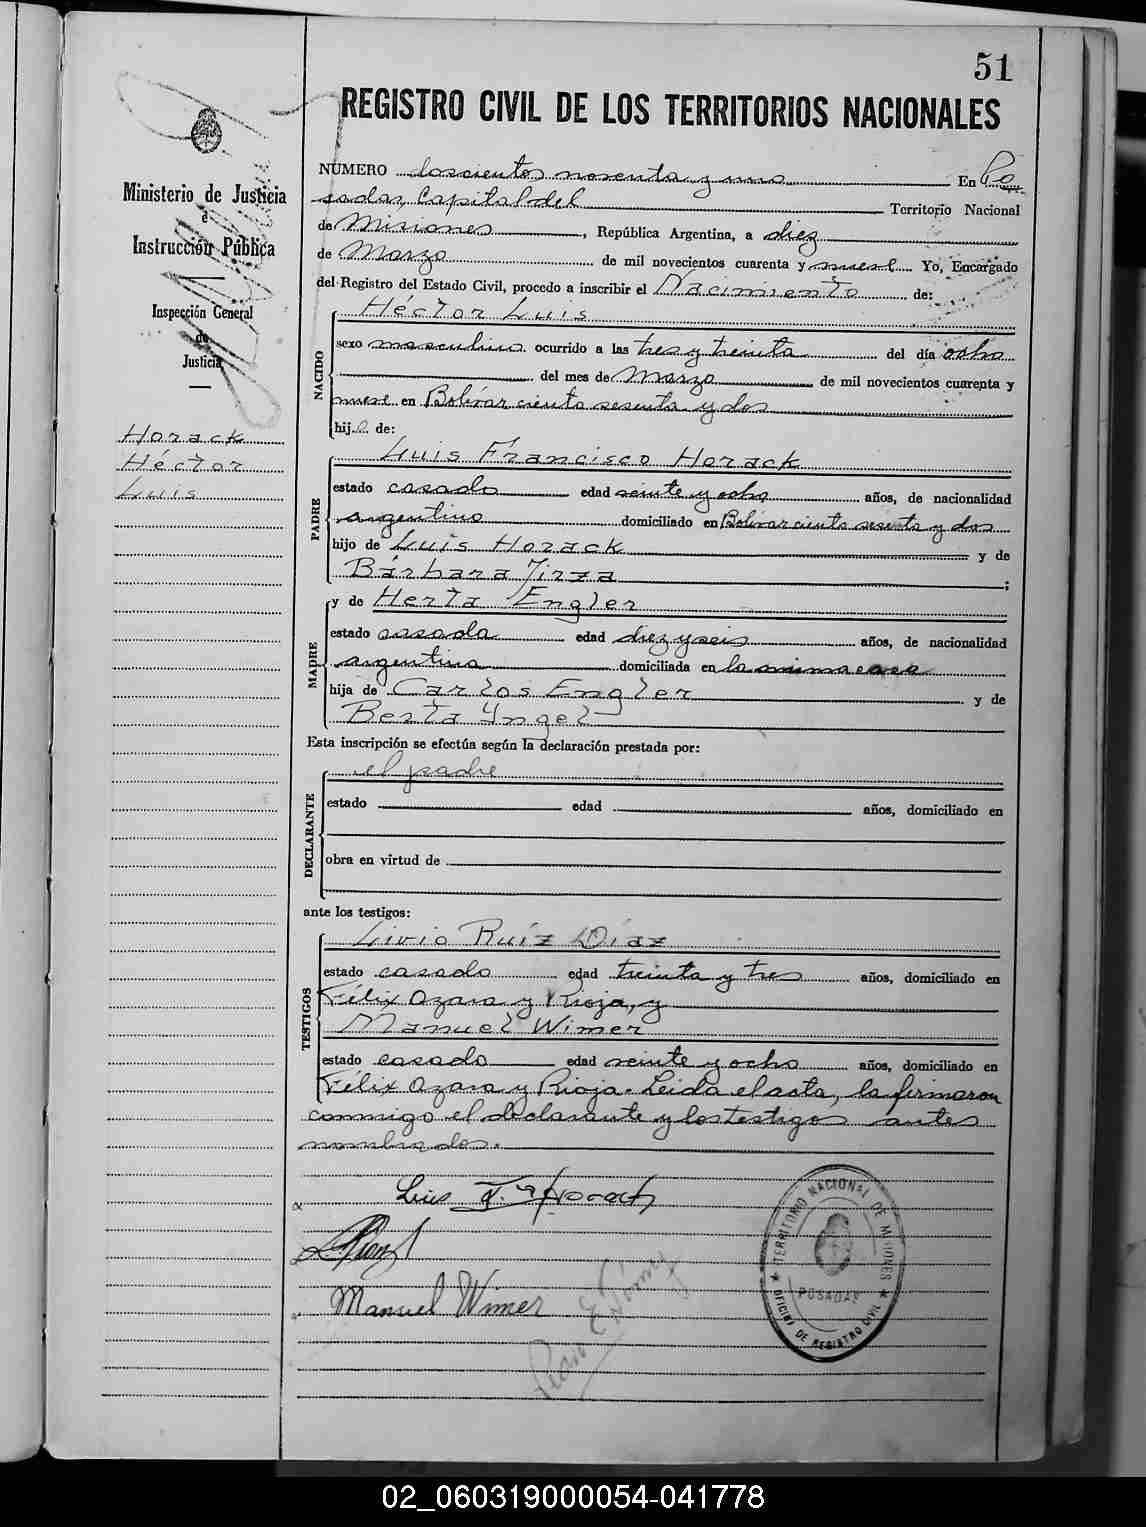 51
REGISTRO CIVIL DE LOS TERRITORIOS NACIONALES
Ministerio de Justicia
é
Instrucción Pública
Inspección General
de
Justicia
Horack
Héctor
Luis
NUMERO doscientos noventa y uno En Po
sadas, Capital del Territorio Nacional
de Misiones, República Argentina, a diez
de Marzo de mil novecientos cuarenta y nueve Yo, Encargado
del Registro del Estado Civil, procedo a inscribir el Nacimiento de:
NACIDO
Héctor Luis
sexo masculino ocurrido a las tres y treinta del día ocho
del mes de Marzo de mil novecientos cuarenta y
nueve en Bolívar ciento sesenta y dos
hijo de:
PADRE
Luis Francisco Horack
estado casado edad veinte y ocho años, de nacionalidad
argentino domiciliado en Bolívar ciento sesenta y dos
hijo de Luis Horack y de
Bárbara Jirza;
MADRE
y de Herta Engler
estado casada edad diez y seis años, de nacionalidad
argentina domiciliada en la misma casa
hija de Carlos Engler y de
Berta Yngel
Esta inscripción se efectúa según la declaración prestada por:
DECLARANTE
el padre
estado edad años, domiciliado en
obra en virtud de
ante los testigos:
TESTIGOS
Livio Ruíz Díaz
estado casado edad treinta y tres años, domiciliado en
Félix Azara y Rioja, y
Manuel Wimer
estado casado edad veinte y ocho años, domiciliado en
Félix Azara y Rioja. Leida el acta, la firmaron
conmigo el declarante y los testigos antes
nombrados.
Luis F. Horack
Manuel Wimer
TERRITORIO NACIONAL DE MISIONES
POSADAS
OFICINA DE REGISTRO CIVIL
02_060319000054-041778